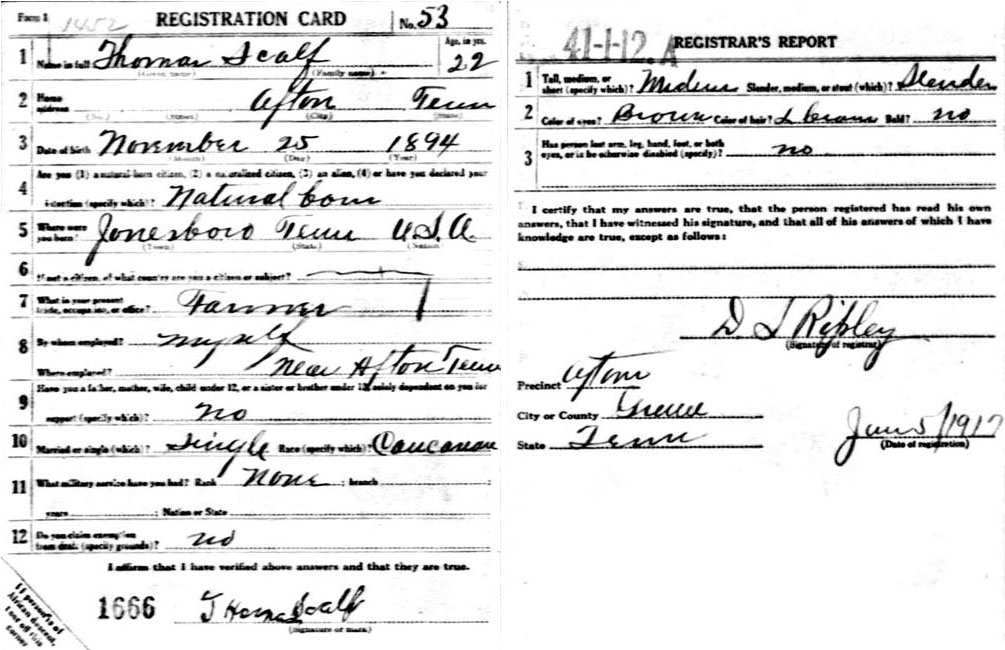 Form 1 1452 REGISTRATION CARD No. 53
1 Name in full Thomas Scalf Age, in yrs. 22
(Given name) (Family name)
2 Home address Afton Tenn
(No.) (Street) (City) (State)
3 Date of birth November 25 1894
(Month) (Day) (Year)
Are you (1) a natural-born citizen, (2) a naturalized citizen, (3) an alien, (4) or have you declared your
4 intention (specify which)? Natural born
5 Where were you born? Jonesboro Tenn U.S.A.
(Town) (State) (Nation)
6 If not a citizen, of what country are you a citizen or subject?
7 What is your present trade, occupation, or office? Farmer
8 By whom employed? myself
Where employed? Near Afton Tenn
Have you a father, mother, wife, child under 12, or a sister or brother under 12, solely dependent on you for
9 support (specify which)? no
10 Married or single (which)? Single Race (specify which)? Caucasian
11 What military service have you had? Rank None ; branch ;
years ; Nation or State
12 Do you claim exemption from draft (specify grounds)? no
I affirm that I have verified above answers and that they are true.
1666 Thomas Scalf
(Signature or mark)
If person is of
African descent,
tear off this
corner
41-1-12. A REGISTRAR'S REPORT
1 Tall, medium, or short (specify which)? Medium Slender, medium, or stout (which)? Slender
2 Color of eyes? Brown Color of hair? L Brown Bald? no
3 Has person lost arm, leg, hand, foot, or both eyes, or is he otherwise disabled (specify)? no
I certify that my answers are true, that the person registered has read his own
answers, that I have witnessed his signature, and that all of his answers of which I have
knowledge are true, except as follows:
D L Ripley
(Signature of registrar)
Precinct Afton
City or County Greene
State Tenn
June 5/1917
(Date of registration)